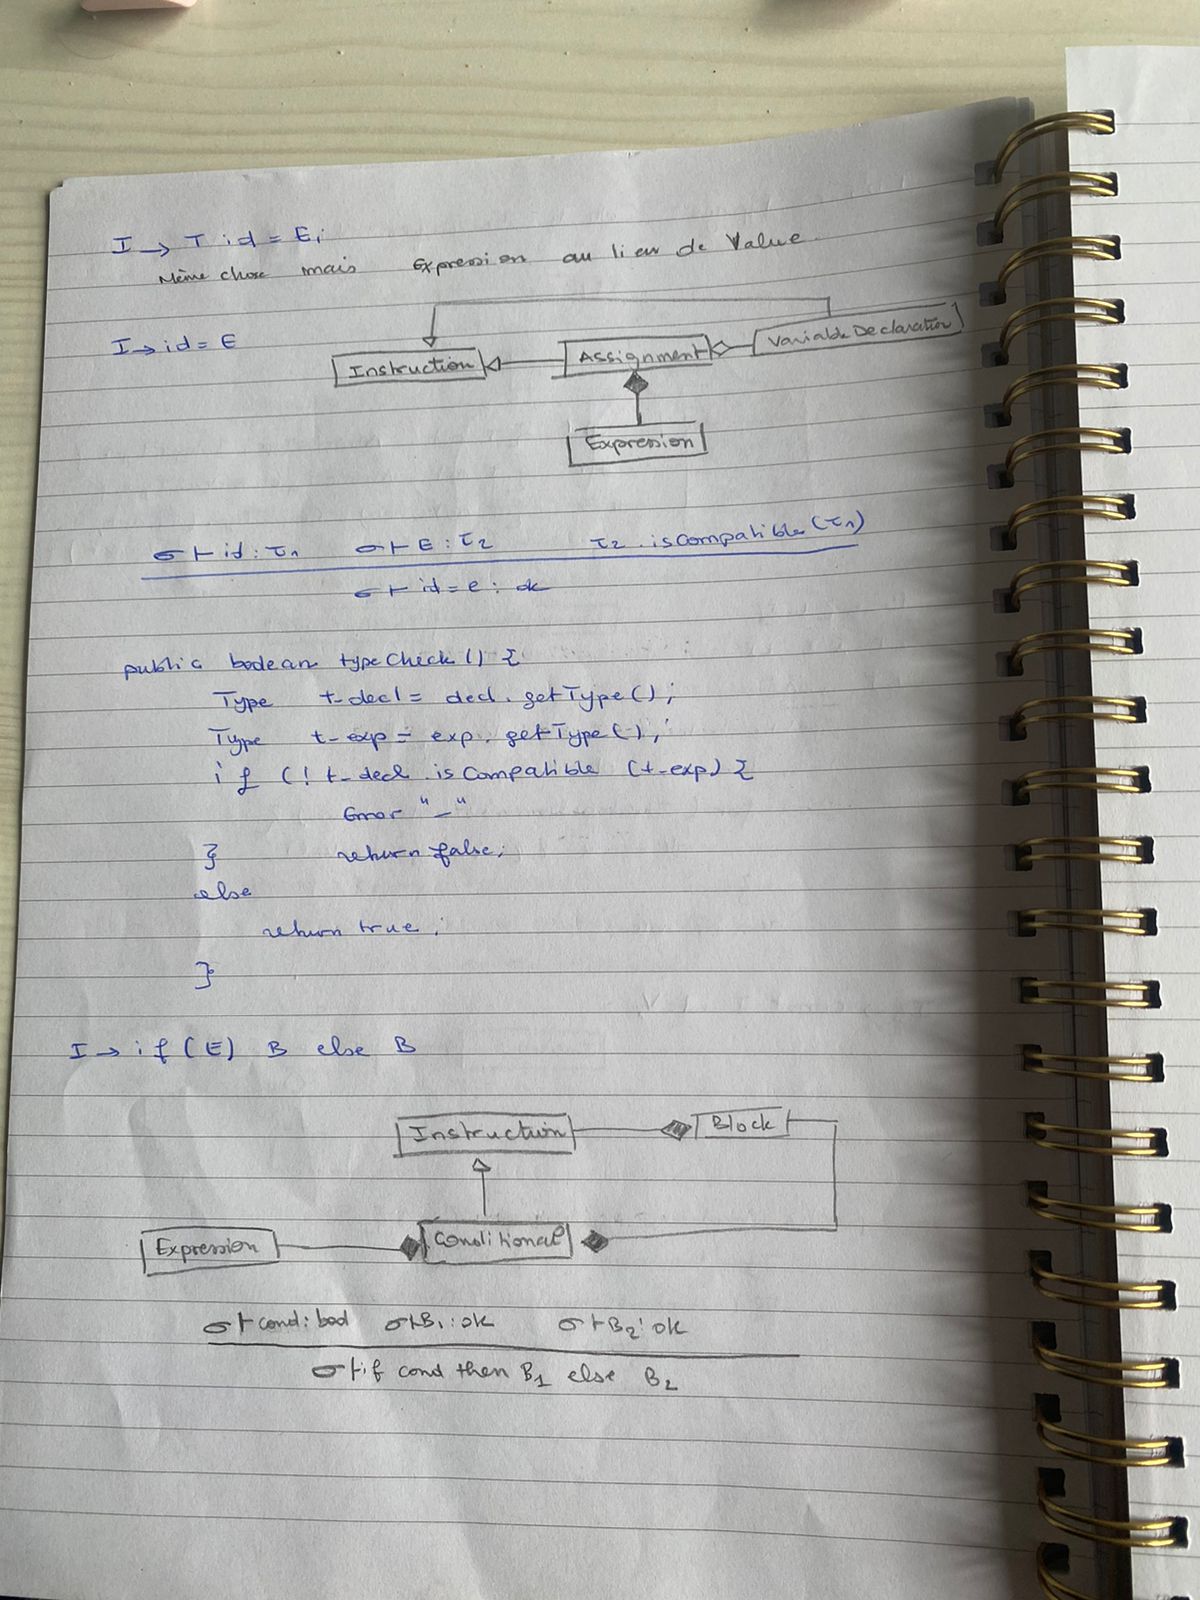 I → T id = E;
Même chose mais Expression au lieu de Value
I → id = E
Instruction Assignment Variable Declaration
Expression
σ ⊢ id : τ₁ σ ⊢ E : τ₂ τ₂ . isCompatible (τ₁)
σ ⊢ id = e : ok
public boolean typeCheck () {
Type t_decl = decl. getType();
Type t_exp = exp. getType();
if (! t_decl . isCompatible (t_exp) {
Error "_"
} return false;
else
return true ;
}
I → if (E) B else B
Instruction Block
Expression Conditional
σ ⊢ cond : bool σ ⊢ B₁ : ok σ ⊢ B₂ : ok
σ ⊢ if cond then B₁ else B₂